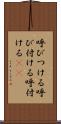 呼びつける呼
び付ける呼付
ける